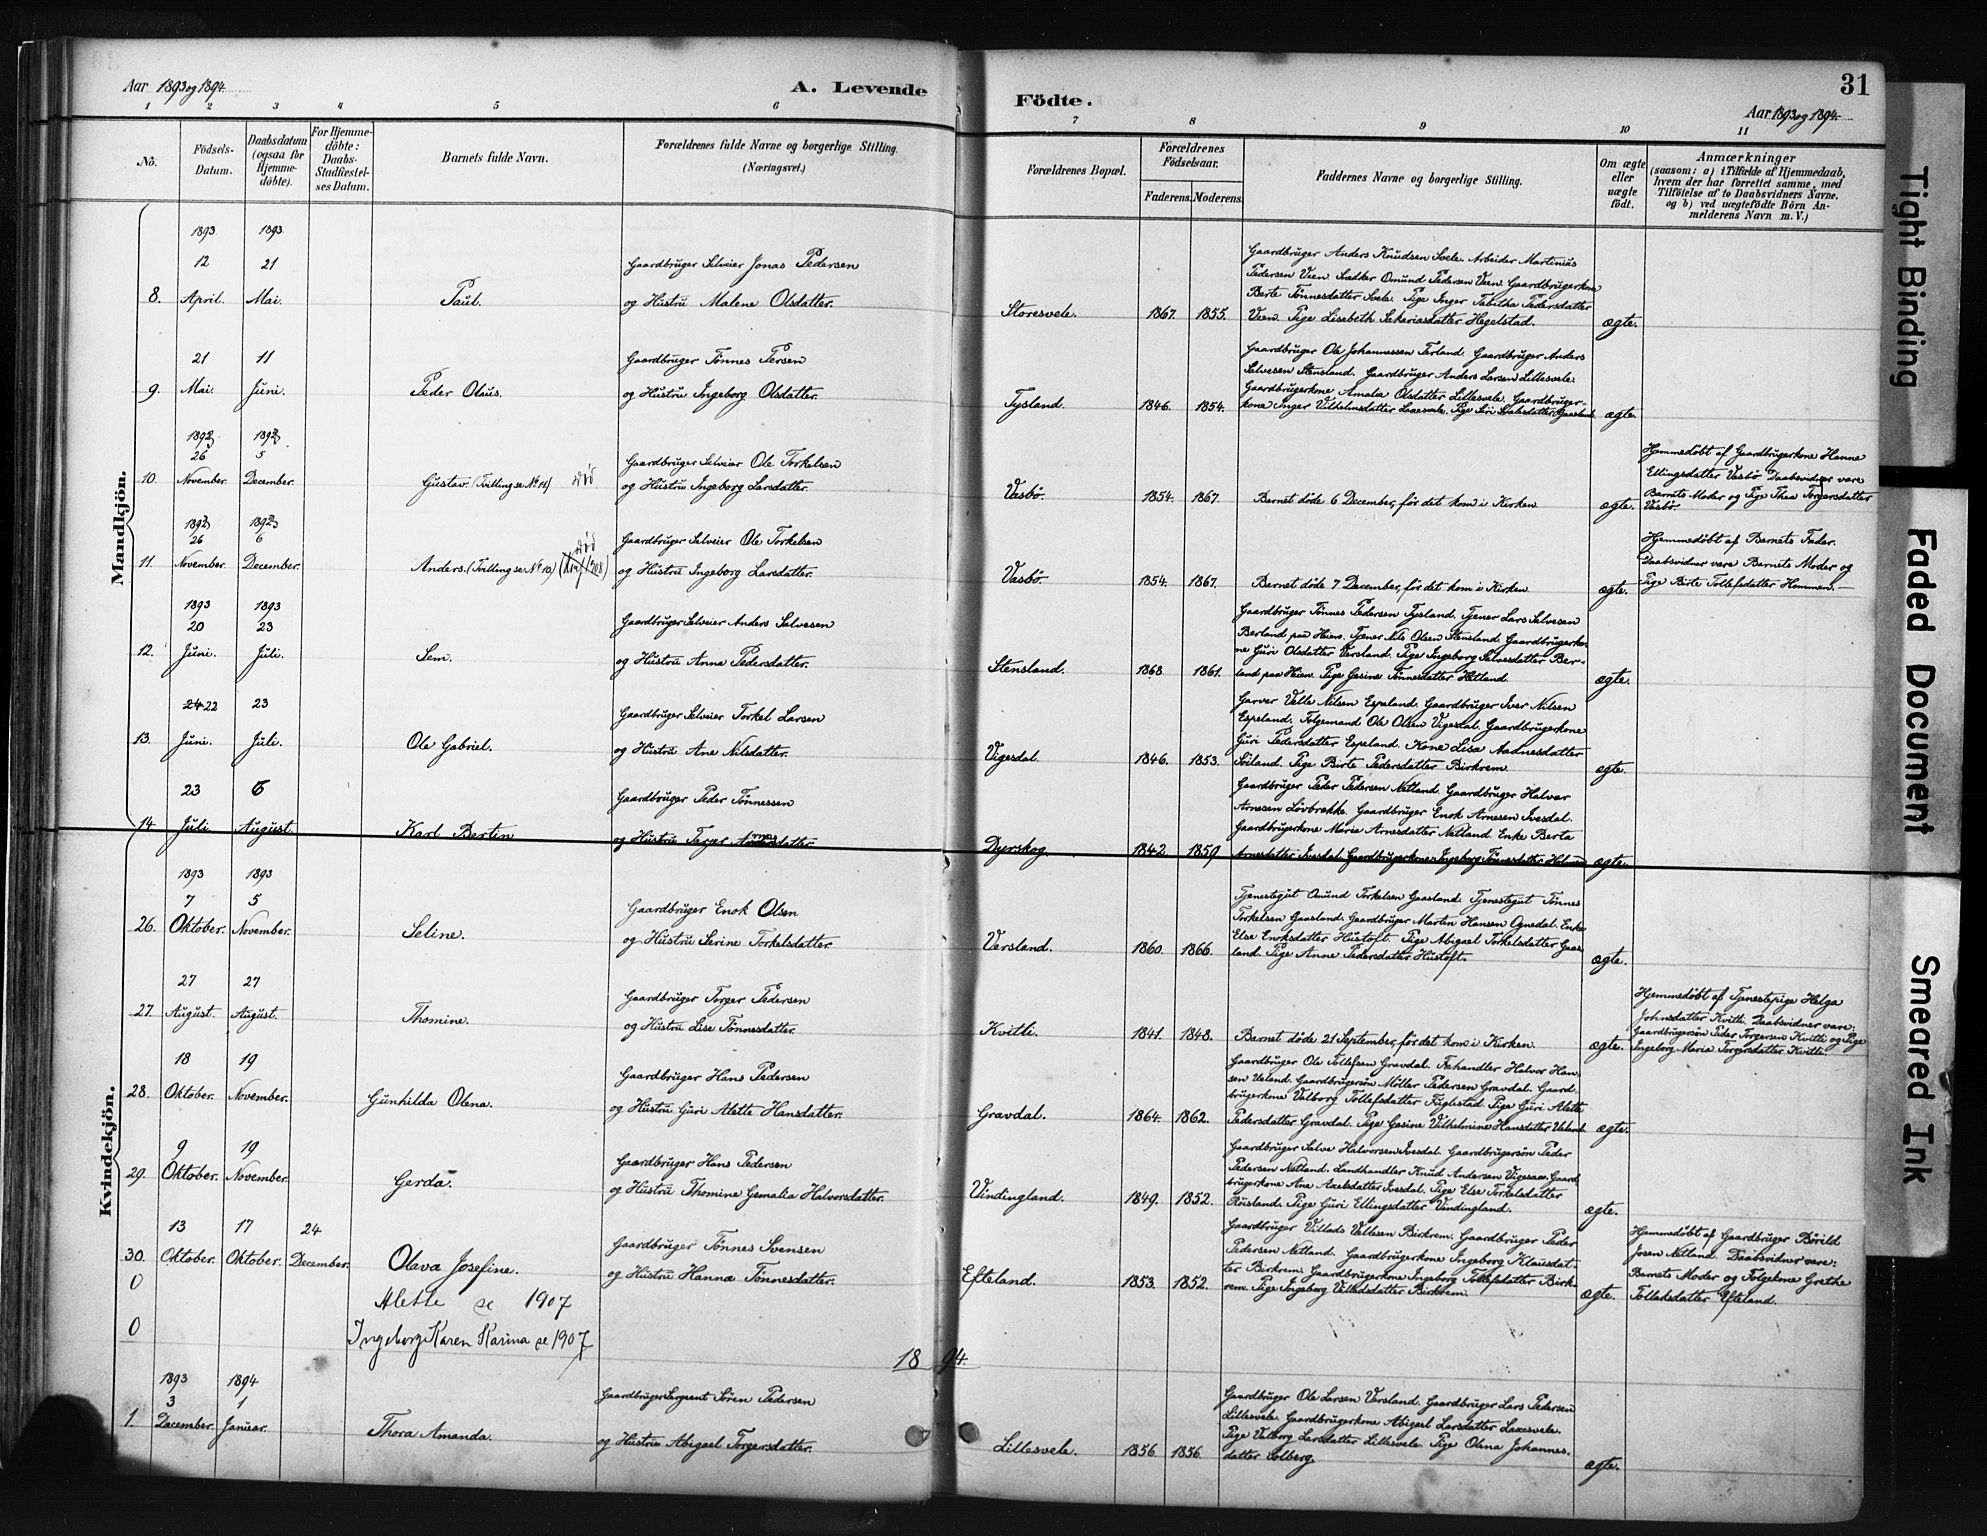 Aar 1893 og 1894.
A. Levende
Födte.
31
Aar 1893 og 1894.
1 2 3 4 5 6 7 8 9 10 11
No.
Födsels-
Datum.
Daabsdatum
(ogsaa for
Hjemme-
döbte).
For Hjemme-
döbte:
Daabs-
Stadfæstel-
ses Datum.
Barnets fulde Navn.
Forældrenes fulde Navne og borgerlige Stilling.
(Næringsvei.)
Forældrenes Bopæl.
Forældrenes
Födselsaar.
Faderens. Moderens.
Faddernes Navne og borgerlige Stilling.
Om ægte
eller
uægte
födt.
Anmærkninger
(saasom: a) i Tilfælde af Hjemmedaab,
hvem der har forrettet samme, med
Tilföielse af to Daabsvidners Navne.
og b) ved uægtefödte Börn An-
melderens Navn m. V.)
Mandkjön.
1893 1893
12 21
8. April. Mai.
Paul.
Gaardbruger Selveier Jonas Pedersen
og Hustru Malene Olsdatter.
Storesvele. 1867. 1855.
Gaardbruger Anders Knudsen Svele. Arbeider Martinius
Pedersen Veen. Snedker Omund Pedersen Veen. Gaardbrugerkone
Berte Tönnesdatter Svele. Pige Inger Tabitha Pedersdatter
Veen. Pige Lisabeth Sekariasdatter Hegelstad.
ægte.
21 11
9. Mai. Juni.
Peder Olaus.
Gaardbruger Tönnes Persen
og Hustru Ingeborg Olsdatter.
Tysland. 1846. 1854.
Gaardbruger Ole Johannessen Terland. Gaardbruger Anders
Salvesen Stensland. Gaardbruger Anders Larsen Lillesvele.
Gaardbrugerkone Amalia Olsdatter Lillesvele. Gaardbruger-
kone Inger Vilhelmsdatter Laxesvele. Pige Siri Gaasland.
ægte.
1892 1892
26 5
10. November. December.
Gustav. (Tvilling se No 11) död
Gaardbruger Selveier Ole Torkelsen
og Hustru Ingeborg Larsdatter.
Vasbö. 1854. 1867.
Barnet döde 6 December, för det kom i Kirken.
ægte.
Hjemmedöbt af Gaardbrugerkone Hanne
Ellingsdatter Vasbö. Daabsvidner vare
Barnets Moder og Pige Thea Torgersdatter
Vasbö.
1892 1892
26 6
11. November. December.
Anders. (Tvilling se No 10) död
Gaardbruger Selveier Ole Torkelsen
og Hustru Ingeborg Larsdatter.
Vasbö. 1854. 1867.
Barnet döde 7 December, för det kom i Kirken.
ægte.
Hjemmedöbt af Barnets Fader.
Daabsvidner vare Barnets Moder og
Pige Birte Tollefsdatter Hommen.
1893 1893
20 23
12. Juni. Juli.
Sem.
Gaardbruger Selveier Anders Salvesen
og Hustru Anne Pedersdatter.
Stensland. 1868. 1861.
Gaardbruger Tönnes Pedersen Tysland. Tjener Lars Salvesen
Berland paa Heien. Tjener Nils Olsen Stensland. Gaardbrugerko-
ne Guri Olsdatter Versland. Pige Ingeborg Salvesdatter Ber-
land paa Heien. Pige Gesine Tönnesdatter Hetland.
ægte.
24 22 23
13. Juni. Juli.
Ole Gabriel.
Gaardbruger Selveier Torkel Larsen
og Hustru Ane Nilsdatter.
Vigesdal. 1846. 1853.
Garver Velle Nilsen Espeland. Gaardbruger Iver Nilsen
Espeland. Folgemand Ole Olsen Vigesdal. Gaardbrugerkone
Guri Pedersdatter Espeland. Kone Lisa Aadnesdatter
Soiland. Pige Birte Pedersdatter Birkrem.
ægte.
23 6
14. Juli. August.
Karl Bertin
Gaardbruger Peder Tönnessen
og Hustru
Dyrskog 1842. 1859
Gaardbruger Peder Pedersen Netland. Gaardbruger Halvor
Arnesen Lövbrække. Gaardbruger Enok Arnesen Ivesdal.
Gaardbrugerkone Maria Arnesdatter Netland. Enke Berta
Arnesdatter Ivesdal. Gaardbrugerkone Ingeborg Tönnesdatter
ægte.
Kvindekjön.
1893 1893
7 5
26. Oktober. November.
Seline.
Gaardbruger Enok Olsen
og Hustru Serine Torkelsdatter.
Versland. 1860. 1866.
Tjenestegut Omund Torkelsen Gaasland. Tjenestegut Tönnes
Torkelsen Gaasland. Gaardbruger Martin Hansen Ognedal. Enke
Else Enoksdatter Hustoft. Pige Abigael Torkelsdatter Gaas-
land. Pige Anne Pedersdatter Hustoft.
ægte.
27 27
27. August. August.
Thomine.
Gaardbruger Torger Pedersen
og Hustru Lise Tönnesdatter.
Kvitli. 1841. 1848.
Barnet döde 21 September, för det kom i Kirken.
ægte.
Hjemmedöbt af Tjenestepige Helga
Johnsdatter Kvitli. Daabsvidner vare:
Gaardbrugersön Peder Torgersen Kvitli og Pige
Ingeborg Maria Torgersdatter Kvitli.
18 19
28. Oktober. November.
Gunhilda Olena.
Gaardbruger Hans Pedersen
og Hustru Guri Alette Hansdatter.
Gravdal. 1864. 1862.
Gaardbruger Ole Tollefsen Gravdal. Fæhandler Halvor Han-
sen Veland. Gaardbrugersön Möller Pedersen Gravdal. Gaard-
brugerkone Valborg Tollefsdatter Fuglestad. Pige Guri Alette
Pedersdatter Gravdal. Pige Gesine Vilhelmine Hansdatter Veland.
ægte.
9 19
29. Oktober. November.
Gerda.
Gaardbruger Hans Pedersen
og Hustru Thomine Gemalia Halvorsdatter.
Vindingland. 1849. 1852.
Gaardbruger Salve Halvorsen Ivesdal. Gaardbrugersön Peder
Pedersen Netland. Landhandler Knud Andersen Vigesaa. Gaard-
brugerkone Ane Axelsdatter Ivesdal. Pige Else Torkelsdatter
Röisland. Pige Guri Ellingsdatter Vindingland.
ægte.
13 17 24
30. Oktober. Oktober. December.
Olava Josefine.
Gaardbruger Tönnes Svensen
og Hustru Hanna Tönnesdatter.
Efteland. 1853. 1852.
Gaardbruger Villads Vellesen Birkrem. Gaardbruger Peder
Pedersen Netland. Gaardbrugerkone Ingeborg Klausdat-
ter Birkrem. Gaardbrugerkone Ingeborg Tollefsdatter Birk-
rem. Pige Ingeborg Villadsdatter Birkrem.
ægte.
Hjemmedöbt af Gaardbruger Börild
Josen Netland. Daabsvidner vare:
Barnets Moder og Folgekone Grethe
Tolladsdatter Efteland.
0 Alette se 1907
0 Ingeborg Karen Karina se 1907
1894.
1893 1894
3 1
1. December. Januar.
Thora Amanda.
Gaardbruger Sergeant Sören Pedersen
og Hustru Abigael Torgersdatter.
Lillesvele. 1856. 1856.
Gaardbruger Ole Larsen Versland. Gaardbruger Lars Pedersen
Lillesvele. Gaardbrugerkone Abigael Larsdatter Laxesvele.
Pige Valborg Larsdatter Lillesvele. Pige Olena Johannes-
datter Solberg.
ægte.
Tight Binding
Faded Document
Smeared Ink